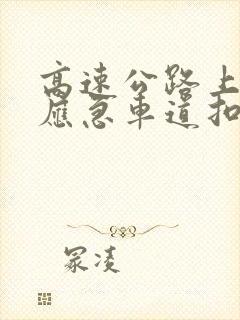 高速公路上
应急车道扣
冢凌